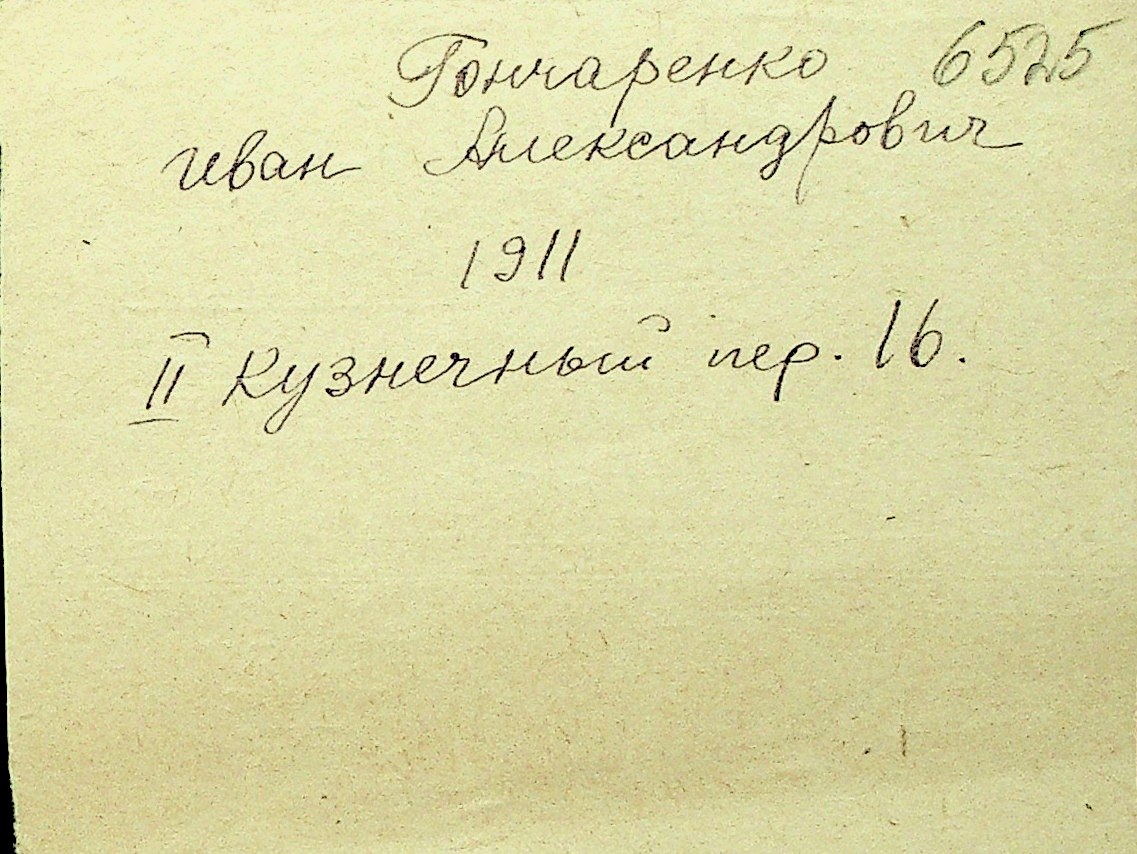 Гончаренко 6525
Иван Александрович
1911
II Кузнечный пер. 16.